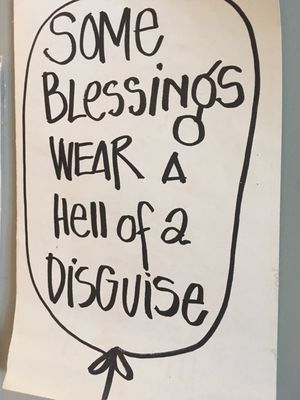 SOME
BLessings
WEAR A
Hell of a
DisGuise